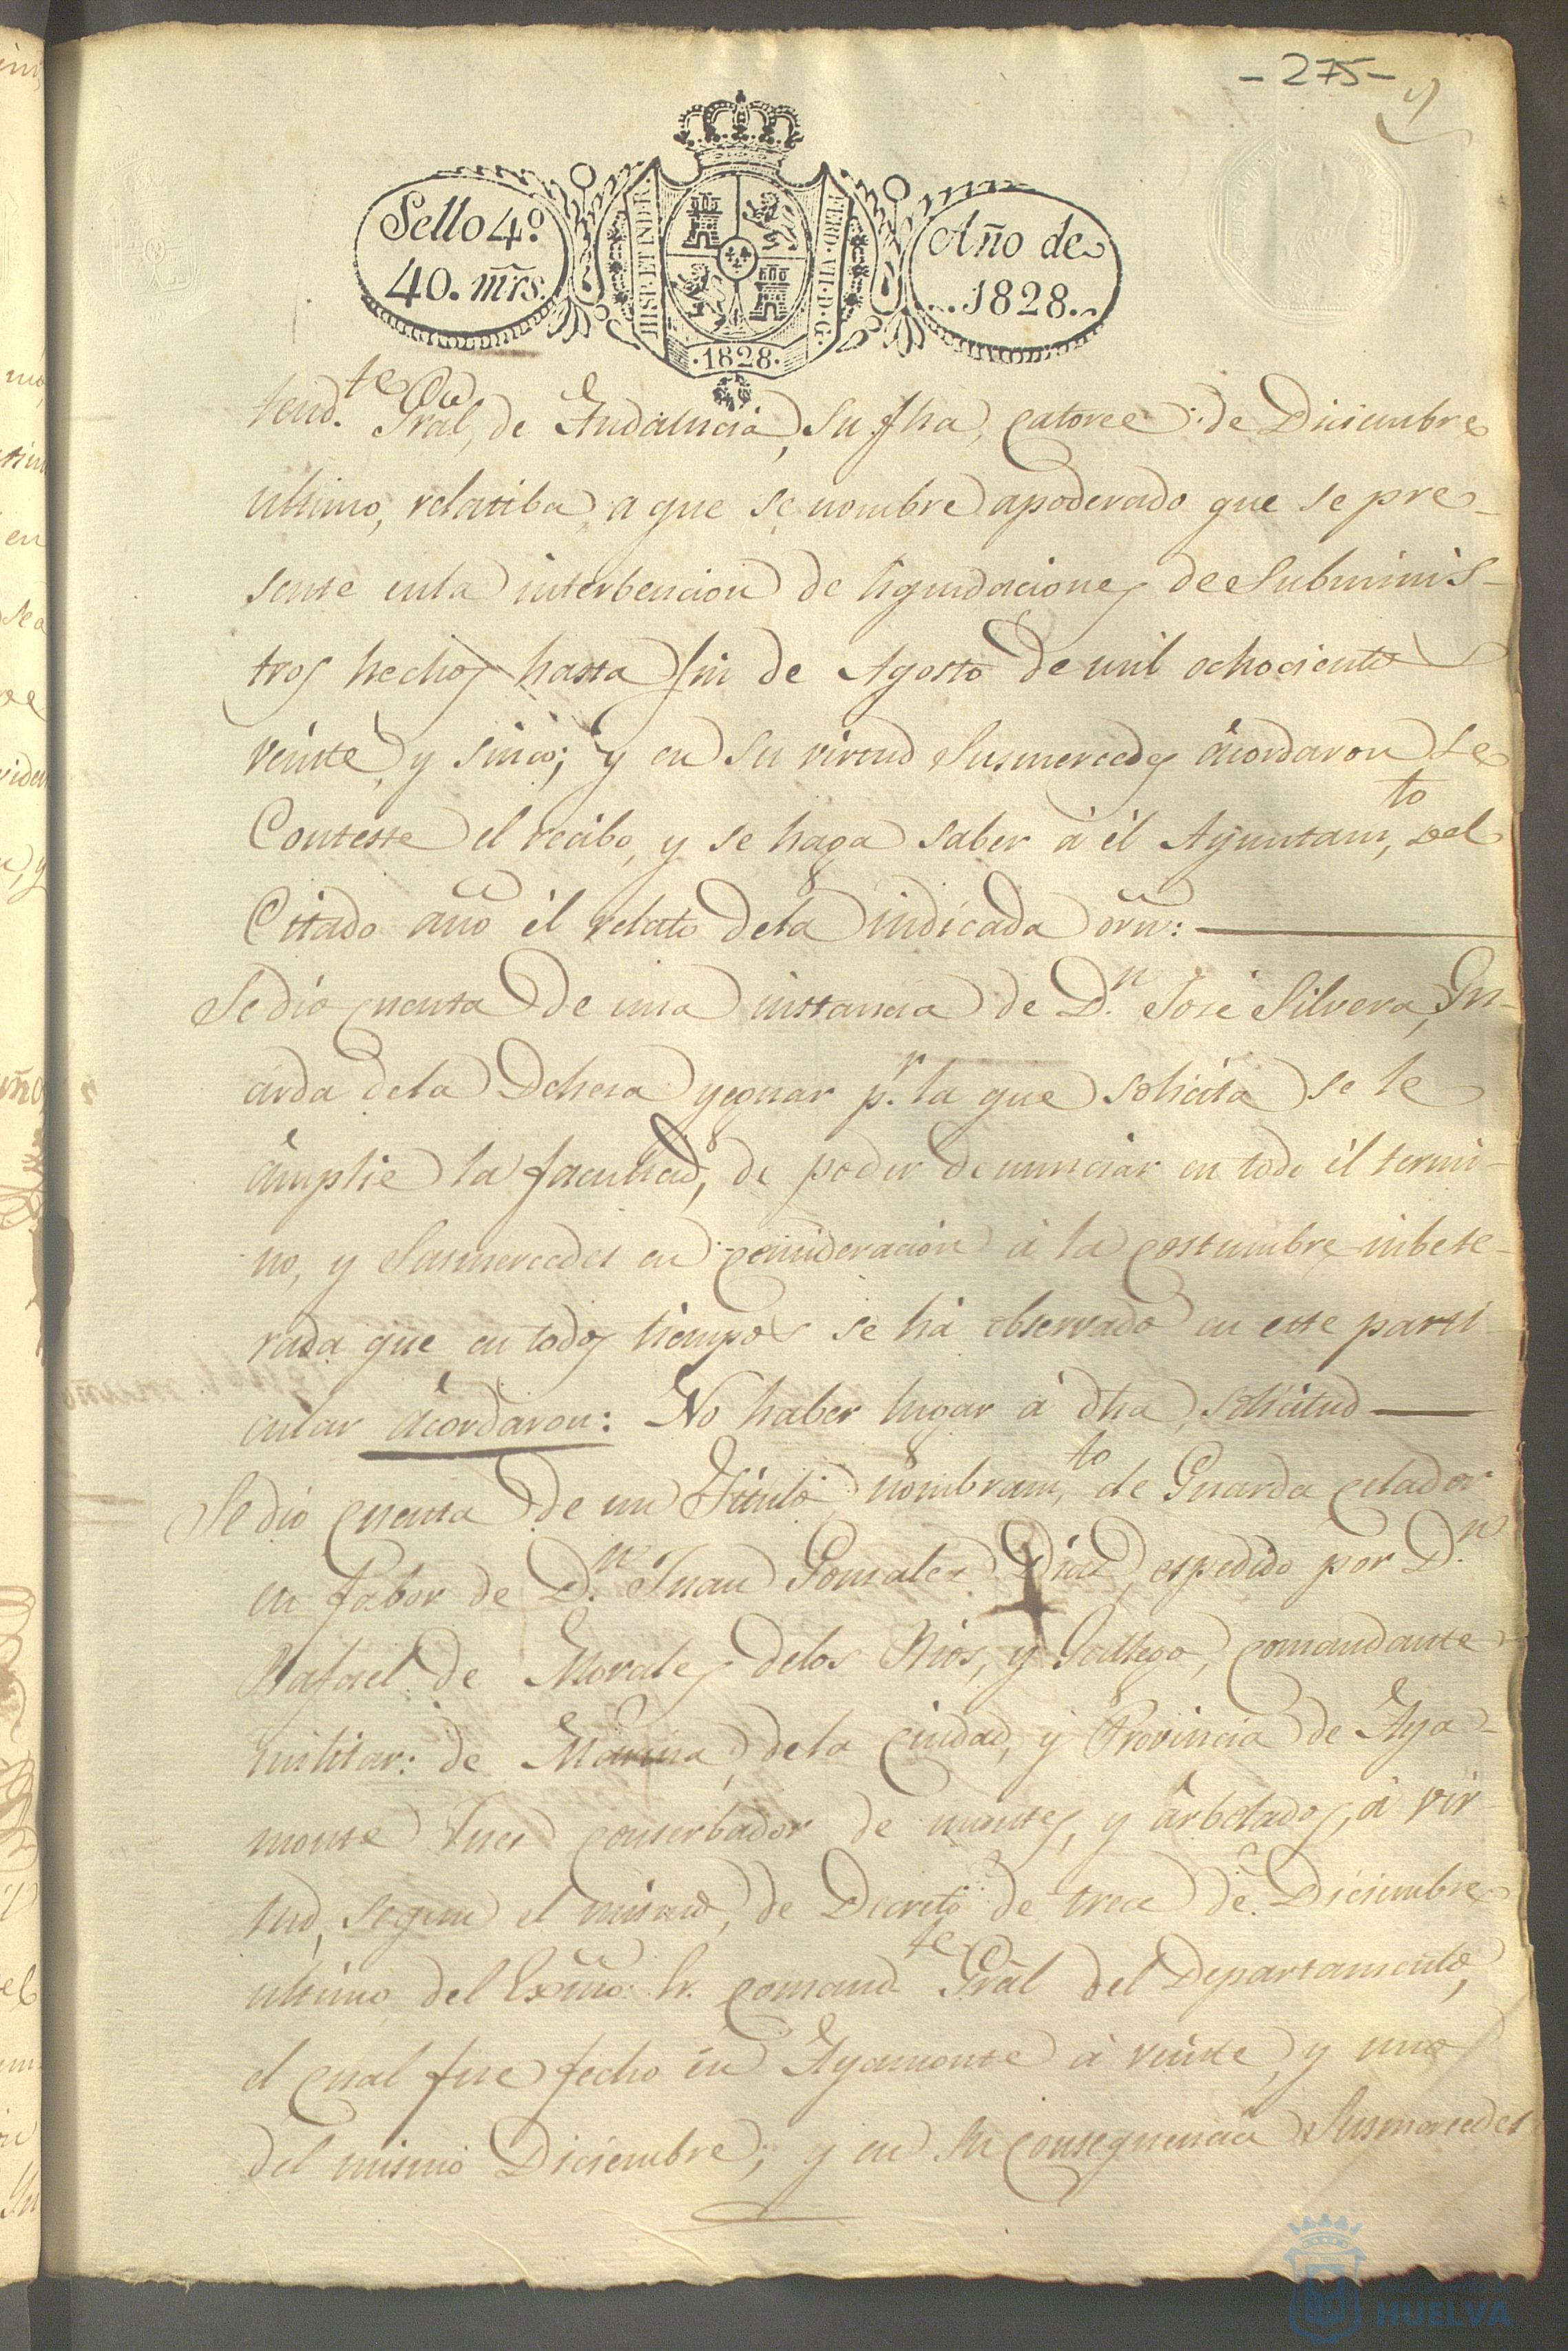 - 275 -
Sello 4.º
40. mrs.
HISP. ET IND. R.
FERD. VII. D. G.
·1828·
Año de
1828.
tend.te Gral, de Andalucia, su fha, catorce de Diciembre
ultimo, relatiba a que se nombre apoderado que se pre-
sente enla interbencion de liquidaciones de Subminis-
tros hechos hasta fin de Agosto de mil ochocientos
veinte, y sinco; y en su virtud Susmercedes ácordaron se
Conteste el recibo, y se haga saber á él Ayuntam.to del
Citado año él relato dela indicada orn:
Se dió cuenta de una instancia de D.n José Silvera, Gu-
arda dela Dehesa yeguar p.r la que solicita se le
ámplie la facultad, de poder denunciar en todo él termi-
no, y Susmercedes en concideracion á la costumbre inbete-
rada que en todos tiempos se há observado en este parti
cular ácordaron: No haber lugar á dha, solicitud
Se dió cuenta de un Titulo nombram.to de Guarda celador
en fabor de D.n Juan Gonzalez Diaz, espedido por D.n
Rafael de Morales delos Rios, y Gallego, comandante
militar: de Marina, dela Ciudad, y Provincia de Aya-
monte Jues conserbador de montes, y árbolados, á vir-
tud, segun el mismo, de Decreto de trece de Diciembre
ultimo del Exmo: Sr. comand.te Gral del Departamento,
el cual fue fecho én Ayamonte á veinte, y uno
del mismo Diciembre; y en su consequencia Susmercedes
HUELVA